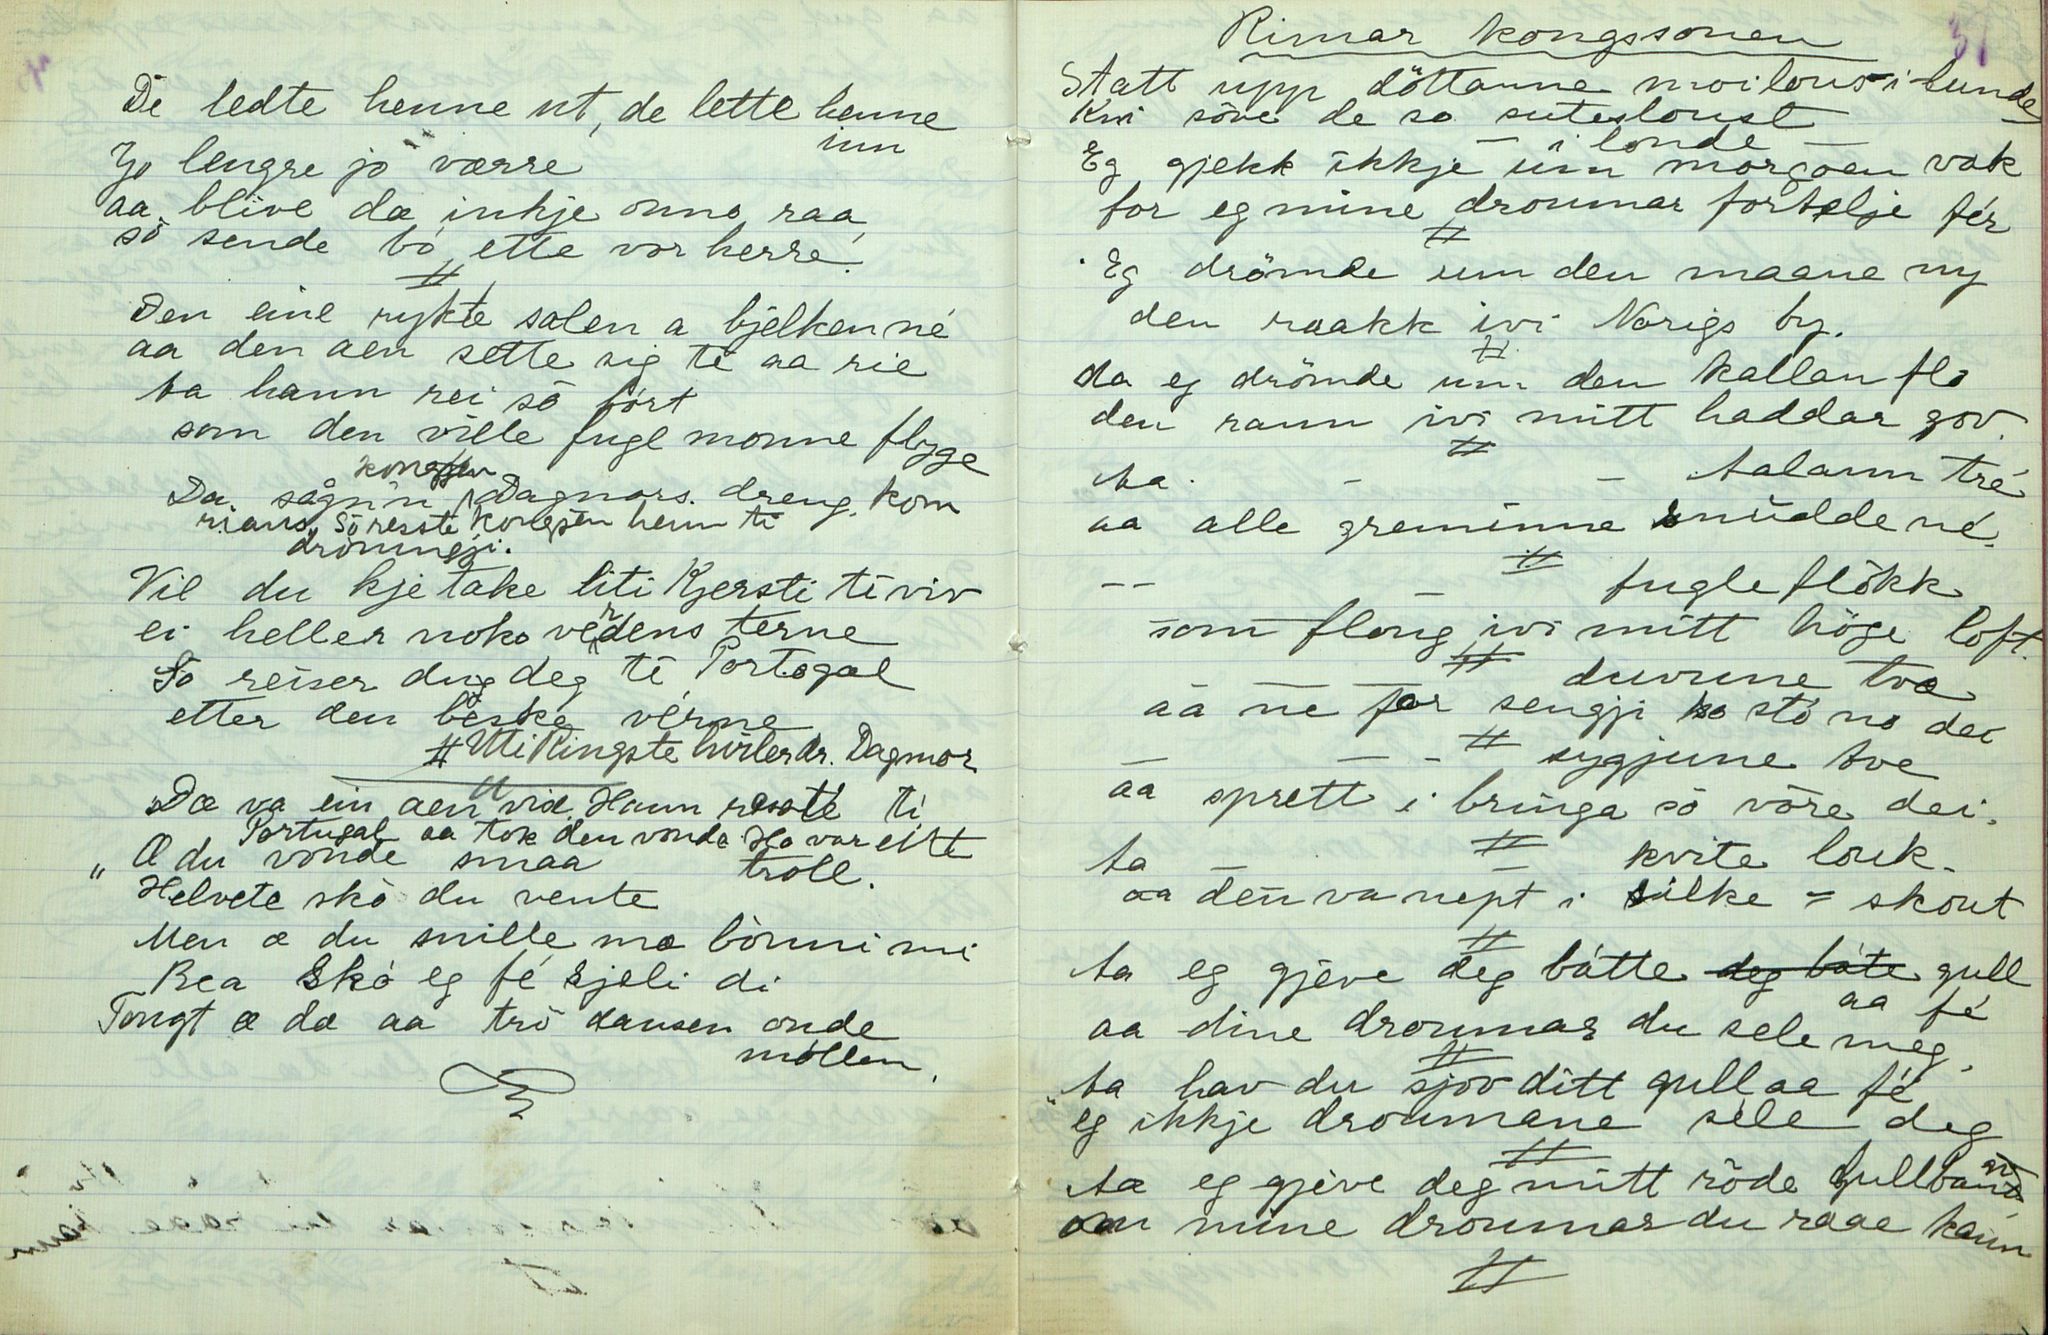 De ledte henne ut, de lette henne
inn
Jo lengre jo værre
aa blive dæ inkje onno raa
sö sende bó ette vor herre.
#
Den eine rykte salen a bjelken né
aa den aen sette sig te aa rie
Aa hann rei sö bórt
som den ville fugl monne flyge
kongjen
Da sågnn Dagmars dreng kom
rians, sö resste kongjen henn ti
dronningji.
Vil du kje take liti Kjersti ti viv
ei heller noko verdens terne
Så reiser du deg ti Portogal
etter den beske vérne
# Uti Ringste hviler dr. Dagmor
"Dæ va ein aen vise. Hann resste ti
Portugal aa tok den vonde. Ho var eitt
troll.
„ Æ du vonde smaa
Helvete skó du vente
Men æ du snille mæ bonni mi
Rea skó eg fé sjeli di
Tongt æ dæ aa trö dansen onde
möllen.
31
Rimar kongssonen
Statt upp döttanne moi lous i lunde
Kvi söve de so sutesloust
– i londe –
Eg gjekk ikkje um morgoen vak
for eg mine droumar fortelje fér
#
Eg drömde um den maane ny
den raakk ivi Norigs by.
#
da eg drömde um den kallan flo
den rann ivi mitt haddar gov.
#
Aa – – Aalann tré
aa alle greninne snudde né.
#
– – – fugleflökk
som floug ivi mitt höge loft.
#
– – – duvune tvæ
aa ne for sengji so stó no dei
#
– – – sygjune tve
aa sprett i bringa só vöre dei.
#
Aa – – kvite louk.
aa den va nept i silke = skout
#
Aa eg gjeve deg bátte deg báte gull
aa fé
aa dine droumar du sele meg.
#
Aa hav du sjov ditt gull aa fé
eg ikkje droumane sele deg
#
Aa eg gjeve deg mitt röde Gullband
om mine droumar du raae kann
#